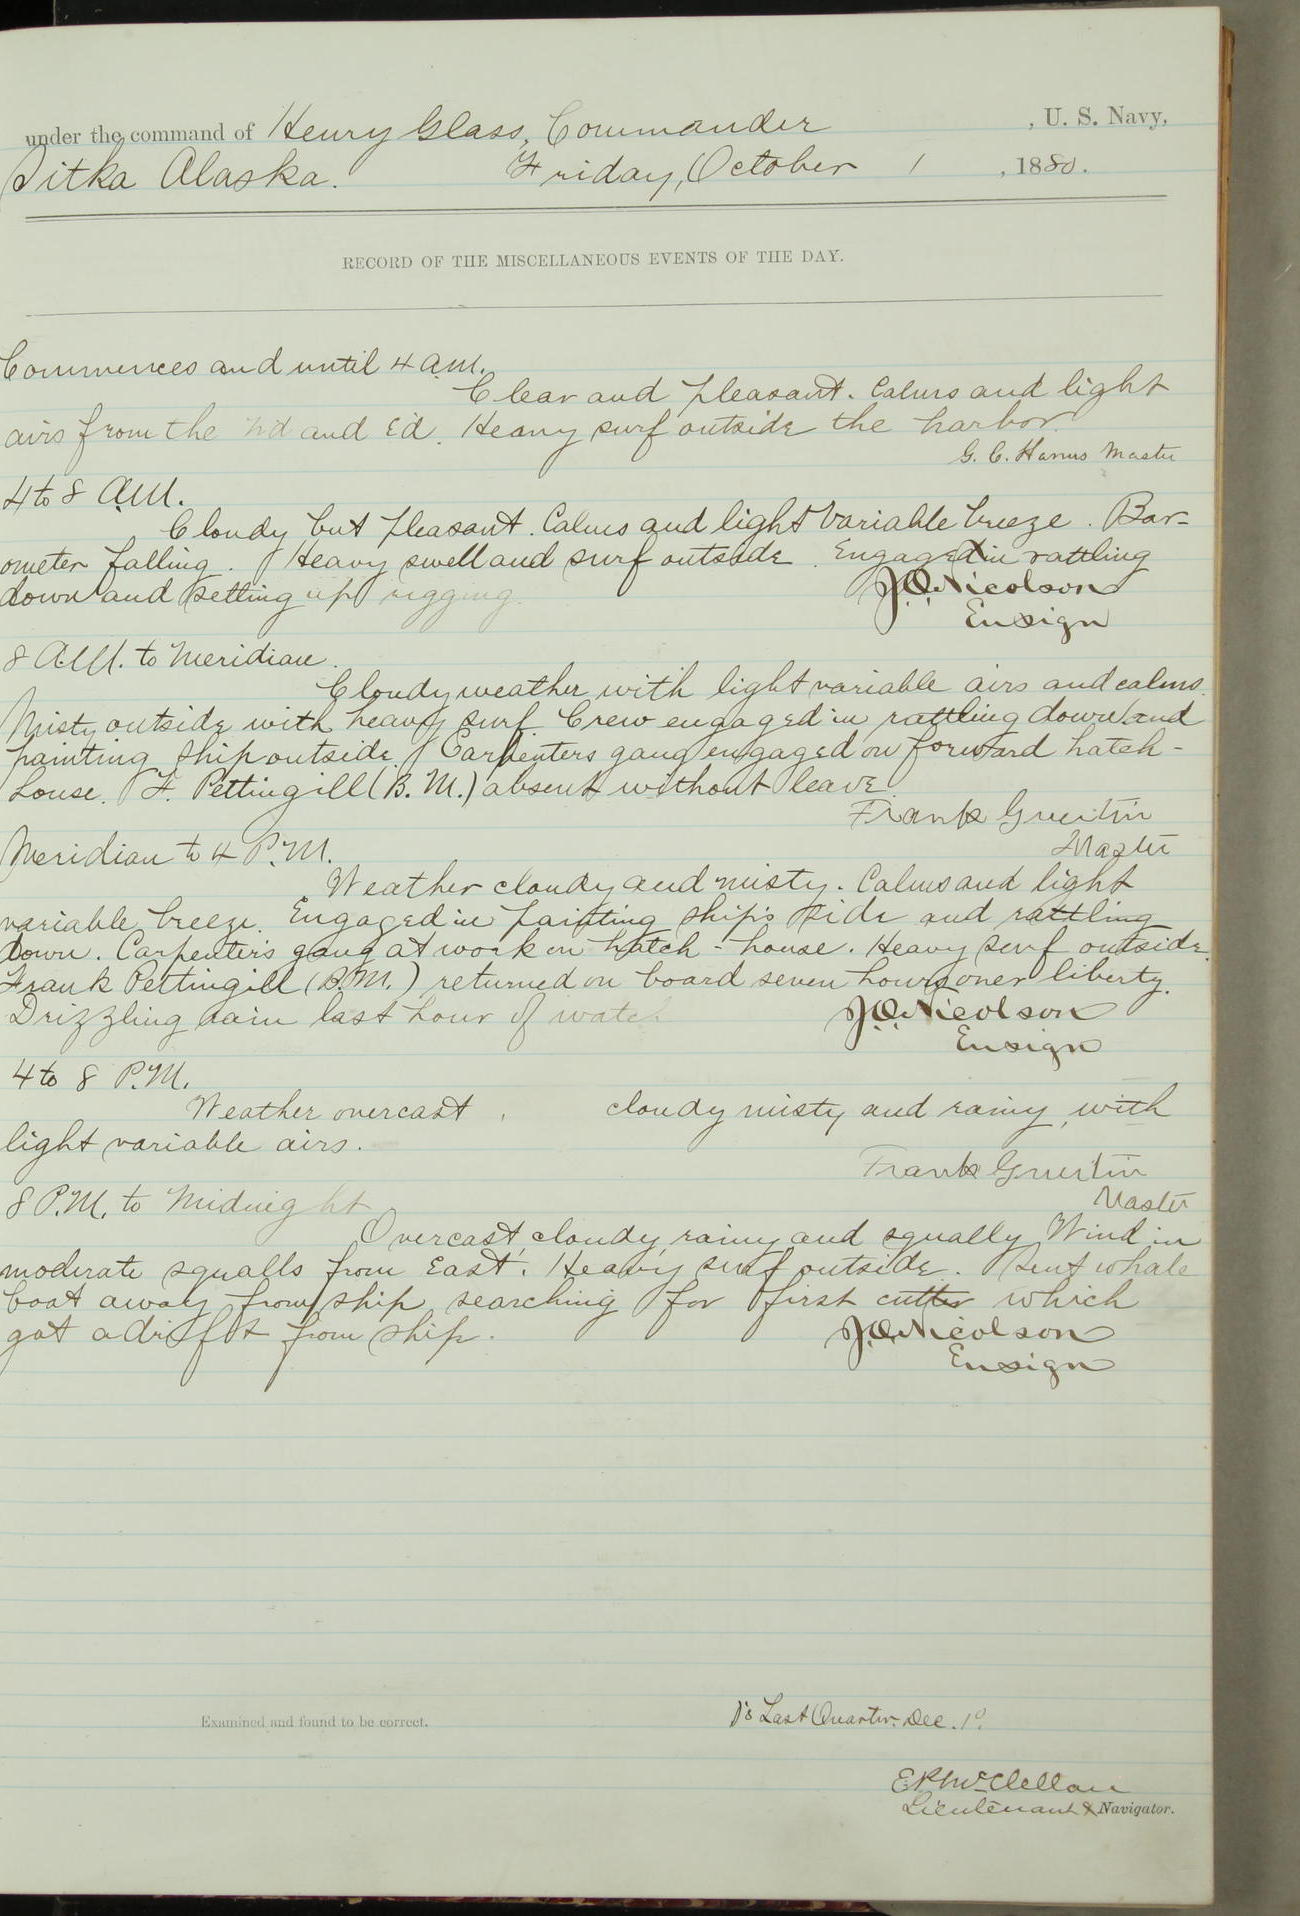 under the command of Henry Glass, Commander , U. S. Navy,
Sitka Alaska. Friday, October 1 , 1880.
RECORD OF THE MISCELLANEOUS EVENTS OF THE DAY.
Commences and until 4 a.m.
Clear and pleasant. Calms and light
airs from the Nd and Ed. Heavy surf outside the harbor.
G. C. Hanus Master
4 to 8 A.M.
Cloudy but pleasant. Calms and light variable breeze. Bar-
ometer falling. Heavy swell and surf outside. Engaged in rattling
down and setting up rigging.
J.O. Nicolson
Ensign
8 A.M. to Meridian.
Cloudy weather with light variable airs and calms.
Misty outside with heavy surf. Crew engaged in rattling down and
painting ship outside. Carpenters gang engaged on forward hatch-
house. F. Pettingill (B.M.) absent without leave.
Frank Guertin
Master
Meridian to 4 P.M.
Weather cloudy and misty. Calms and light
variable breeze. Engaged in painting ship's side and rattling
down. Carpenter's gang at work on hatch-house. Heavy surf outside.
Frank Pettingill (B.M.) returned on board seven hours over liberty.
Drizzling rain last hour of watch
J.O. Nicolson
Ensign
4 to 8 P.M.
Weather overcast, cloudy misty and rainy, with
light variable airs.
Frank Guertin
Master
8 P.M. to Midnight
Overcast, cloudy, rainy and squally. Wind in
moderate squalls from East. Heavy surf outside. Sent whale
boat away from ship searching for first cutter which
got adrift from ship.
J.O. Nicolson
Ensign
Examined and found to be correct.
Last Quarter. Dec. 1°.
E P McClellan
Lieutenant & Navigator.